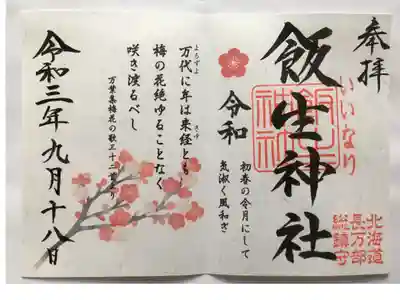 奉拝
飯生神社
いいなり
北海道
長万部
総鎮守
令和
初春の令月にして
気淑く風和ぎ
よろづよ
万代に年は来経とも
きゆ
梅の花絶ゆることなく
咲き渡るべし
万葉集梅花の歌三十二首より
令和三年九月十八日